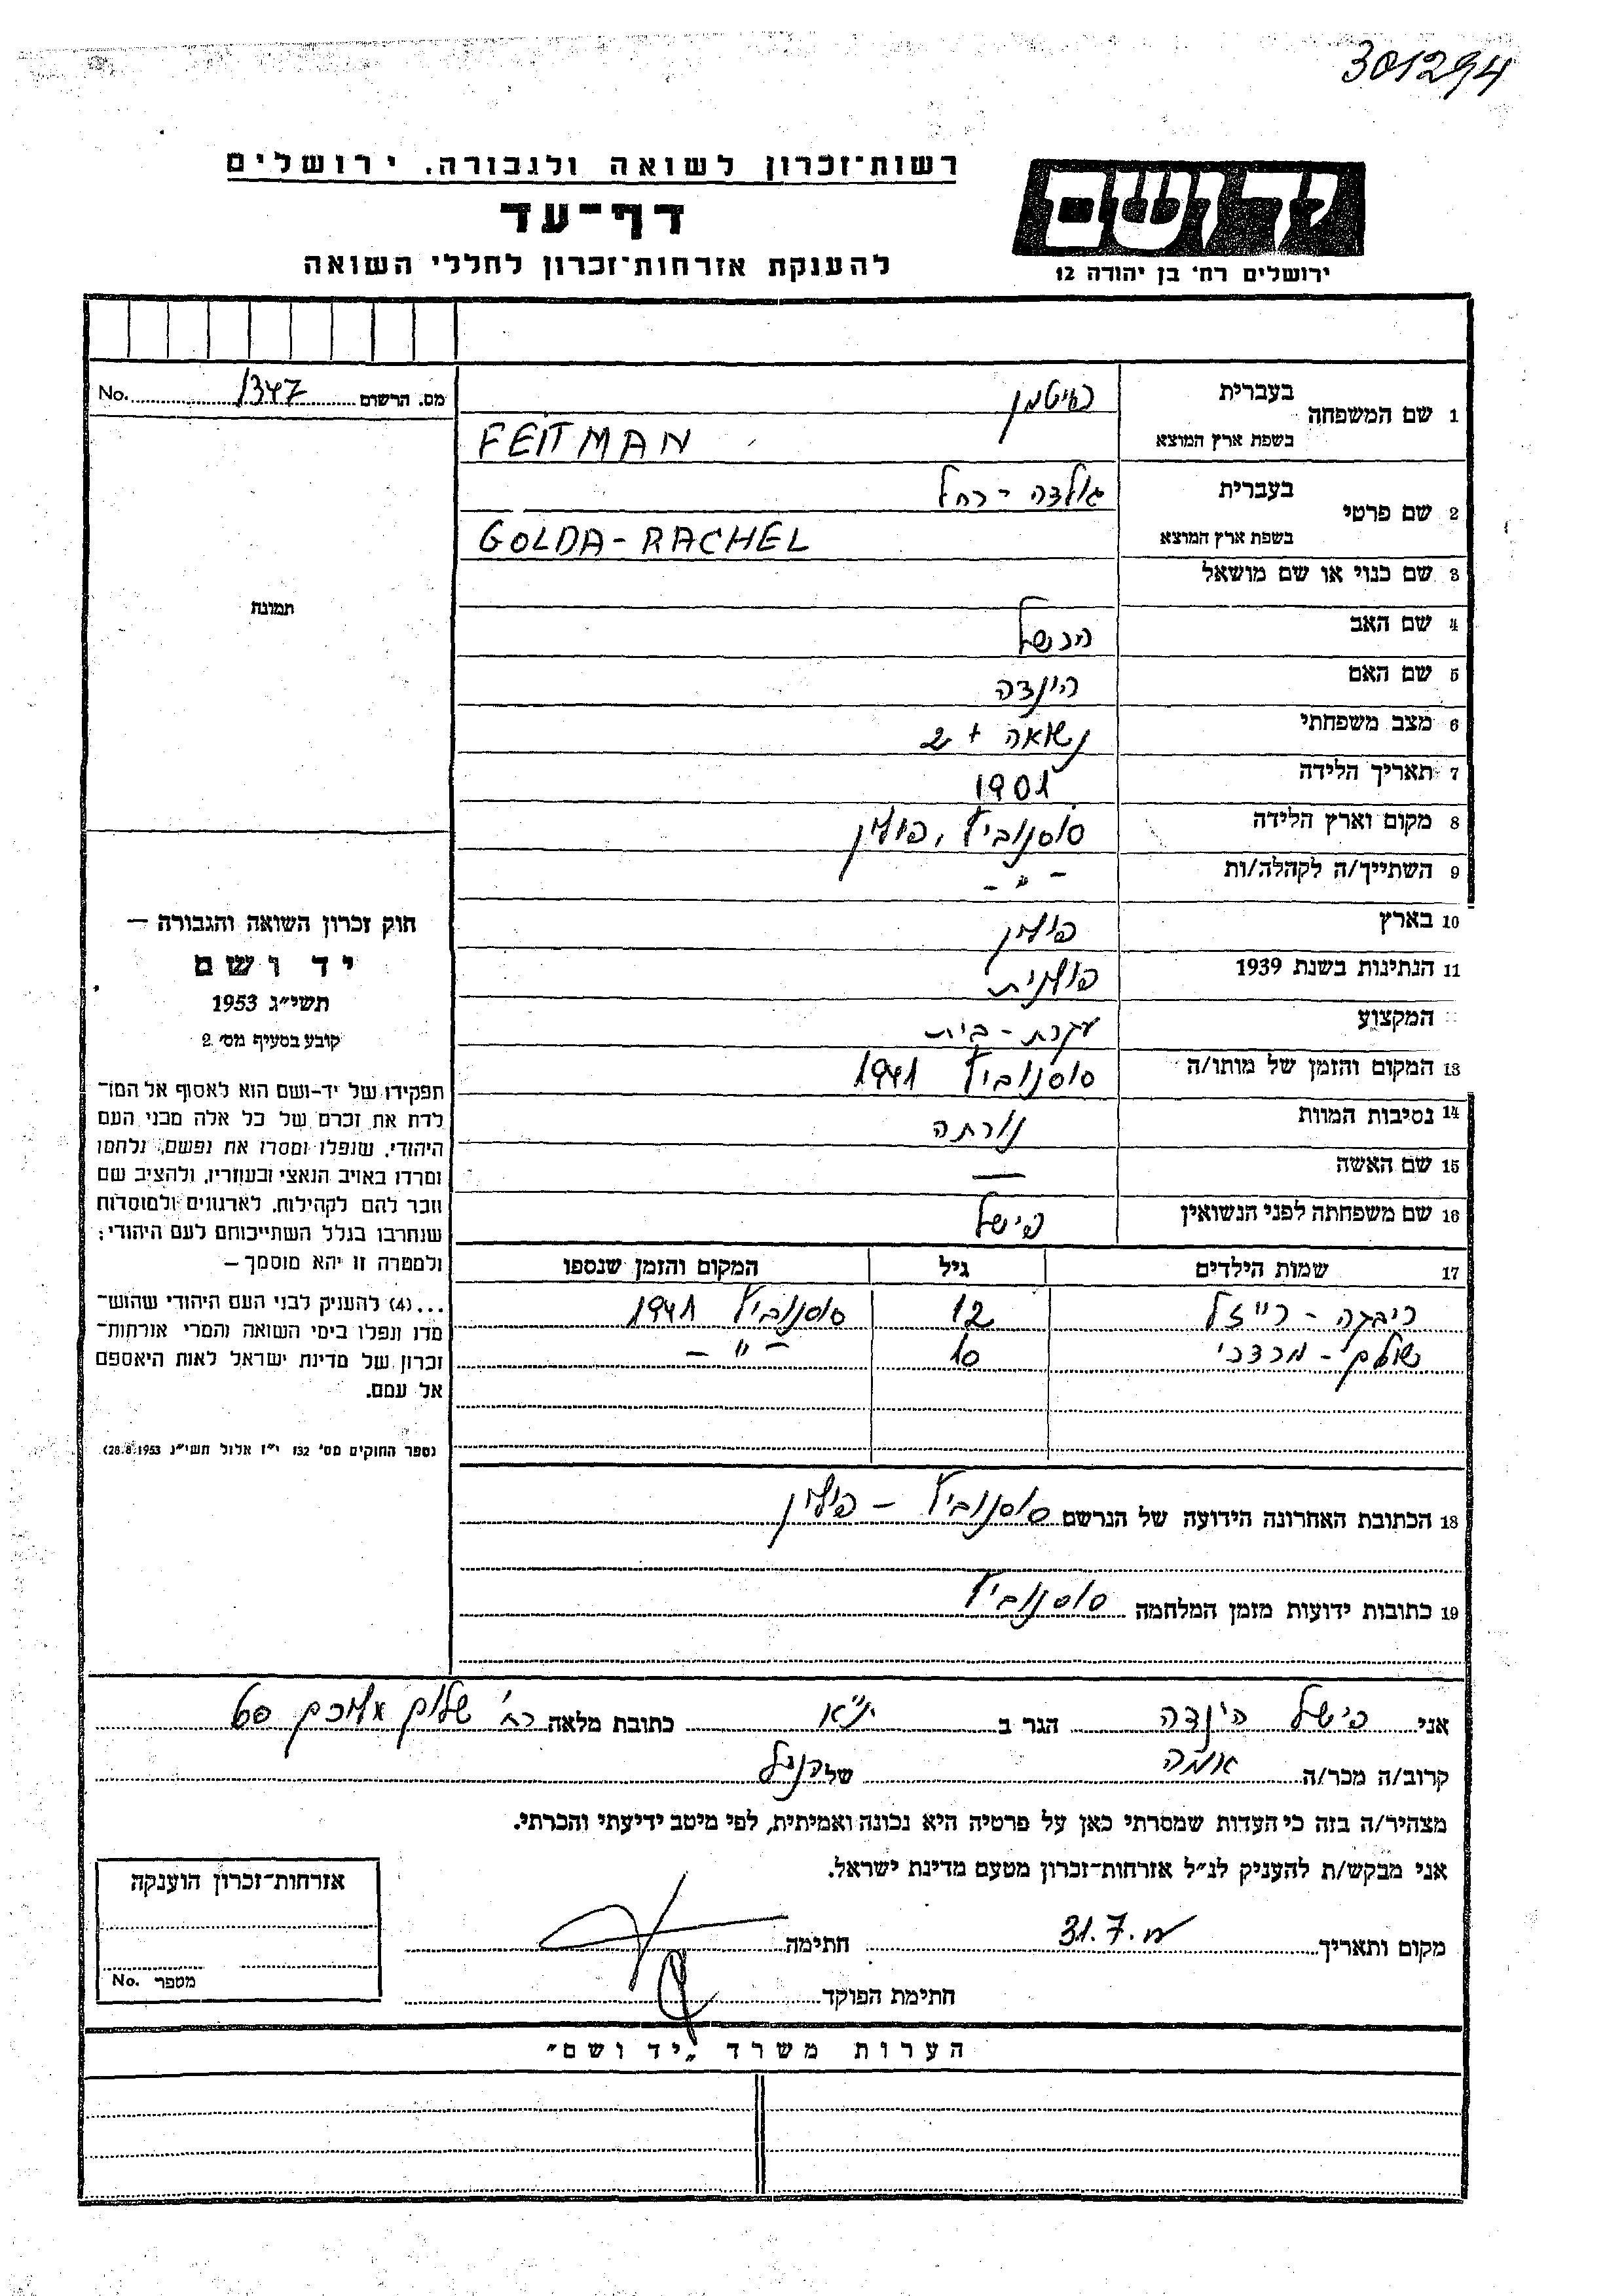 301294
רשות־זכרון לשואה ולגבורה. ירושלים
דף־עד
להענקת אזרחות־זכרון לחללי השואה
יד ושם
ירושלים רח' בן יהודה 12
No. 1347 מס. הרשום
תמונה
1 שם המשפחה
בעברית פייטמן
בשפת ארץ המוצא FEITMAN
2 שם פרטי
בעברית גולדה - רחל
בשפת ארץ המוצא GOLDA - RACHEL
3 שם כנוי או שם מושאל
4 שם האב הרשל
5 שם האם הינדה
6 מצב משפחתי נשואה + 2
7 תאריך הלידה 1901
8 מקום וארץ הלידה סוסנוביץ, פולין
9 השתייך/ה לקהלה/ות - " -
10 בארץ פולין
11 הנתינות בשנת 1939 פולנית
המקצוע עקרת - בית
13 המקום והזמן של מותו/ה סוסנוביץ 1941
14 נסיבות המוות נורתה
15 שם האשה —
16 שם משפחתה לפני הנשואין פישל
17 שמות הילדים גיל המקום והזמן שנספו
ריבקה - רייזל 12 סוסנוביץ 1941
שולם - מרדכי 10 - " -
18 הכתובת האחרונה הידועה של הנרשם סוסנוביץ - פולין
19 כתובות ידועות מזמן המלחמה סוסנוביץ
חוק זכרון השואה והגבורה —
יד ושם
תשי"ג 1953
קובע בסעיף מס' 2
תפקידו של יד-ושם הוא לאסוף אל המו־
לדת את זכרם של כל אלה מבני העם
היהודי, שנפלו ומסרו את נפשם, נלחמו
ומרדו באויב הנאצי ובעוזריו, ולהציב שם
וזכר להם לקהילות, לארגונים ולמוסדות
שנחרבו בגלל השתייכותם לעם היהודי;
ולמטרה זו יהא מוסמך —
...(4) להעניק לבני העם היהודי שהוש־
מדו ונפלו בימי השואה והמרי אזרחות־
זכרון של מדינת ישראל לאות היאספם
אל עמם.
(ספר החוקים מס' 132 י"ז אלול תשי"ג 28.8.1953)
אני פישל הינדה הגר ב ת"א כתובת מלאה רח' שלום עליכם 60
קרוב/ה מכר/ה אמה של הנ"ל
מצהיר/ה בזה כי העדות שמסרתי כאן על פרטיה היא נכונה ואמיתית, לפי מיטב ידיעתי והכרתי.
אני מבקש/ת להעניק לנ"ל אזרחות־זכרון מטעם מדינת ישראל.
מקום ותאריך 31.7. חתימה
חתימת הפוקד
אזרחות־זכרון הוענקה
מספר No.
הערות משרד „יד ושם"